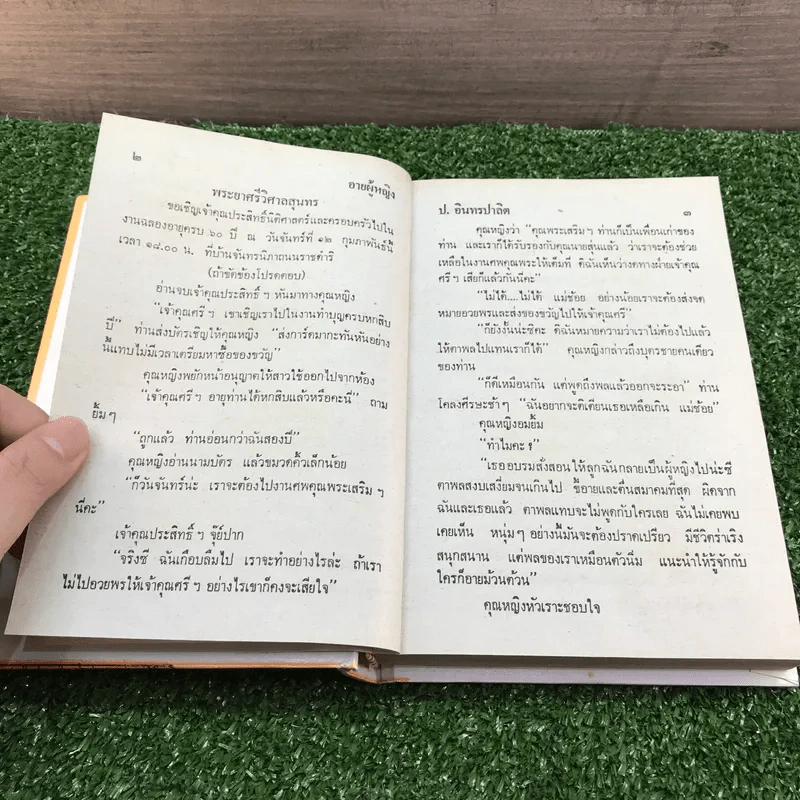 ๒
อายผู้หญิง
พระยาศรีวิศาลสุนทร
ขอเชิญเจ้าคุณประสิทธิ์นิติศาสตร์และครอบครัวไปใน
งานฉลองอายุครบ ๖๐ ปี ณ วันจันทร์ที่ ๑๒ กุมภาพันธ์นี้
เวลา ๑๘.๐๐ น. ที่บ้านจันทรนิภาถนนราชดำริ
(ถ้าขัดข้องโปรดตอบ)
อ่านจบเจ้าคุณประสิทธิ์ ฯ หันมาทางคุณหญิง
“เจ้าคุณศรี ฯ เขาเชิญเราไปในงานทำบุญครบหกสิบ
ปี” ท่านส่งบัตรเชิญให้คุณหญิง “ส่งการ์ดมากะทันหันอย่าง
นี้แทบไม่มีเวลาเตรียมหาซื้อของขวัญ”
คุณหญิงพยักหน้าอนุญาตให้สาวใช้ออกไปจากห้อง
“เจ้าคุณศรี ฯ อายุท่านได้หกสิบแล้วหรือคะนี่” ถาม
ยิ้ม ๆ
“ถูกแล้ว ท่านอ่อนกว่าฉันสองปี”
คุณหญิงอ่านนามบัตร แล้วขมวดคิ้วเล็กน้อย
“ก็วันจันทร์น่ะ เราจะต้องไปงานศพคุณพระเสริม ฯ
นี่คะ”
เจ้าคุณประสิทธิ์ ฯ จุ๊ย์ปาก
“จริงซี ฉันเกือบลืมไป เราจะทำอย่างไรล่ะ ถ้าเรา
ไม่ไปอวยพรให้เจ้าคุณศรี ฯ อย่างไรเขาก็คงจะเสียใจ”
ป. อินทรปาลิต
๓
คุณหญิงว่า “คุณพระเสริม ฯ ท่านก็เป็นเพื่อนเก่าของ
ท่าน และเราก็ได้รับรองกับคุณนายสุ่นแล้ว ว่าเราจะต้องช่วย
เหลือในงานศพคุณพระให้เต็มที่ ดิฉันเห็นว่างดทางฝ่ายเจ้าคุณ
ศรี ฯ เสียก็แล้วกันนี่คะ”
“ไม่ได้....ไม่ได้ แม่ช้อย อย่างน้อยเราจะต้องส่งจด
หมายอวยพรและส่งของขวัญไปให้เจ้าคุณศรี”
“ก็ยังงั้นน่ะซิคะ ดิฉันหมายความว่าเราไม่ต้องไปแล้ว
ให้ตาพลไปแทนเราก็ได้” คุณหญิงกล่าวถึงบุตรชายคนเดียว
ของท่าน
“ก็ดีเหมือนกัน แต่พูดถึงพลแล้วออกจะระอา” ท่าน
โคลงศีรษะช้า ๆ “ฉันอยากจะติเตียนเธอเหลือเกิน แม่ช้อย”
คุณหญิงอมยิ้ม
“ทำไมคะ ?”
“เธออบรมสั่งสอนให้ลูกฉันกลายเป็นผู้หญิงไปน่ะซี
ตาพลสงบเสงี่ยมจนเกินไป ขี้อายและตื่นสมาคมที่สุด ผิดจาก
ฉันและเธอแล้ว ตาพลแทบจะไม่พูดกับใครเลย ฉันไม่เคยพบ
เคยเห็น หนุ่มๆ อย่างนี้มันจะต้องปราดเปรียว มีชีวิตร่าเริง
สนุกสนาน แต่พลของเราเหมือนตัวนิ่ม แนะนำให้รู้จักกับ
ใครก็อายม้วนต้วน”
คุณหญิงหัวเราะชอบใจ